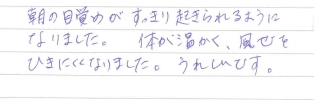 朝の目覚めがすっきり起きられるように
なりました。 体が温かく、風せを
ひきにくくなりました。 うれしいです。